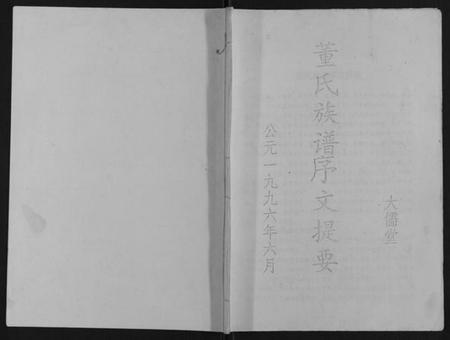 大儒堂
董氏族谱序文提要
公元一九九六年六月